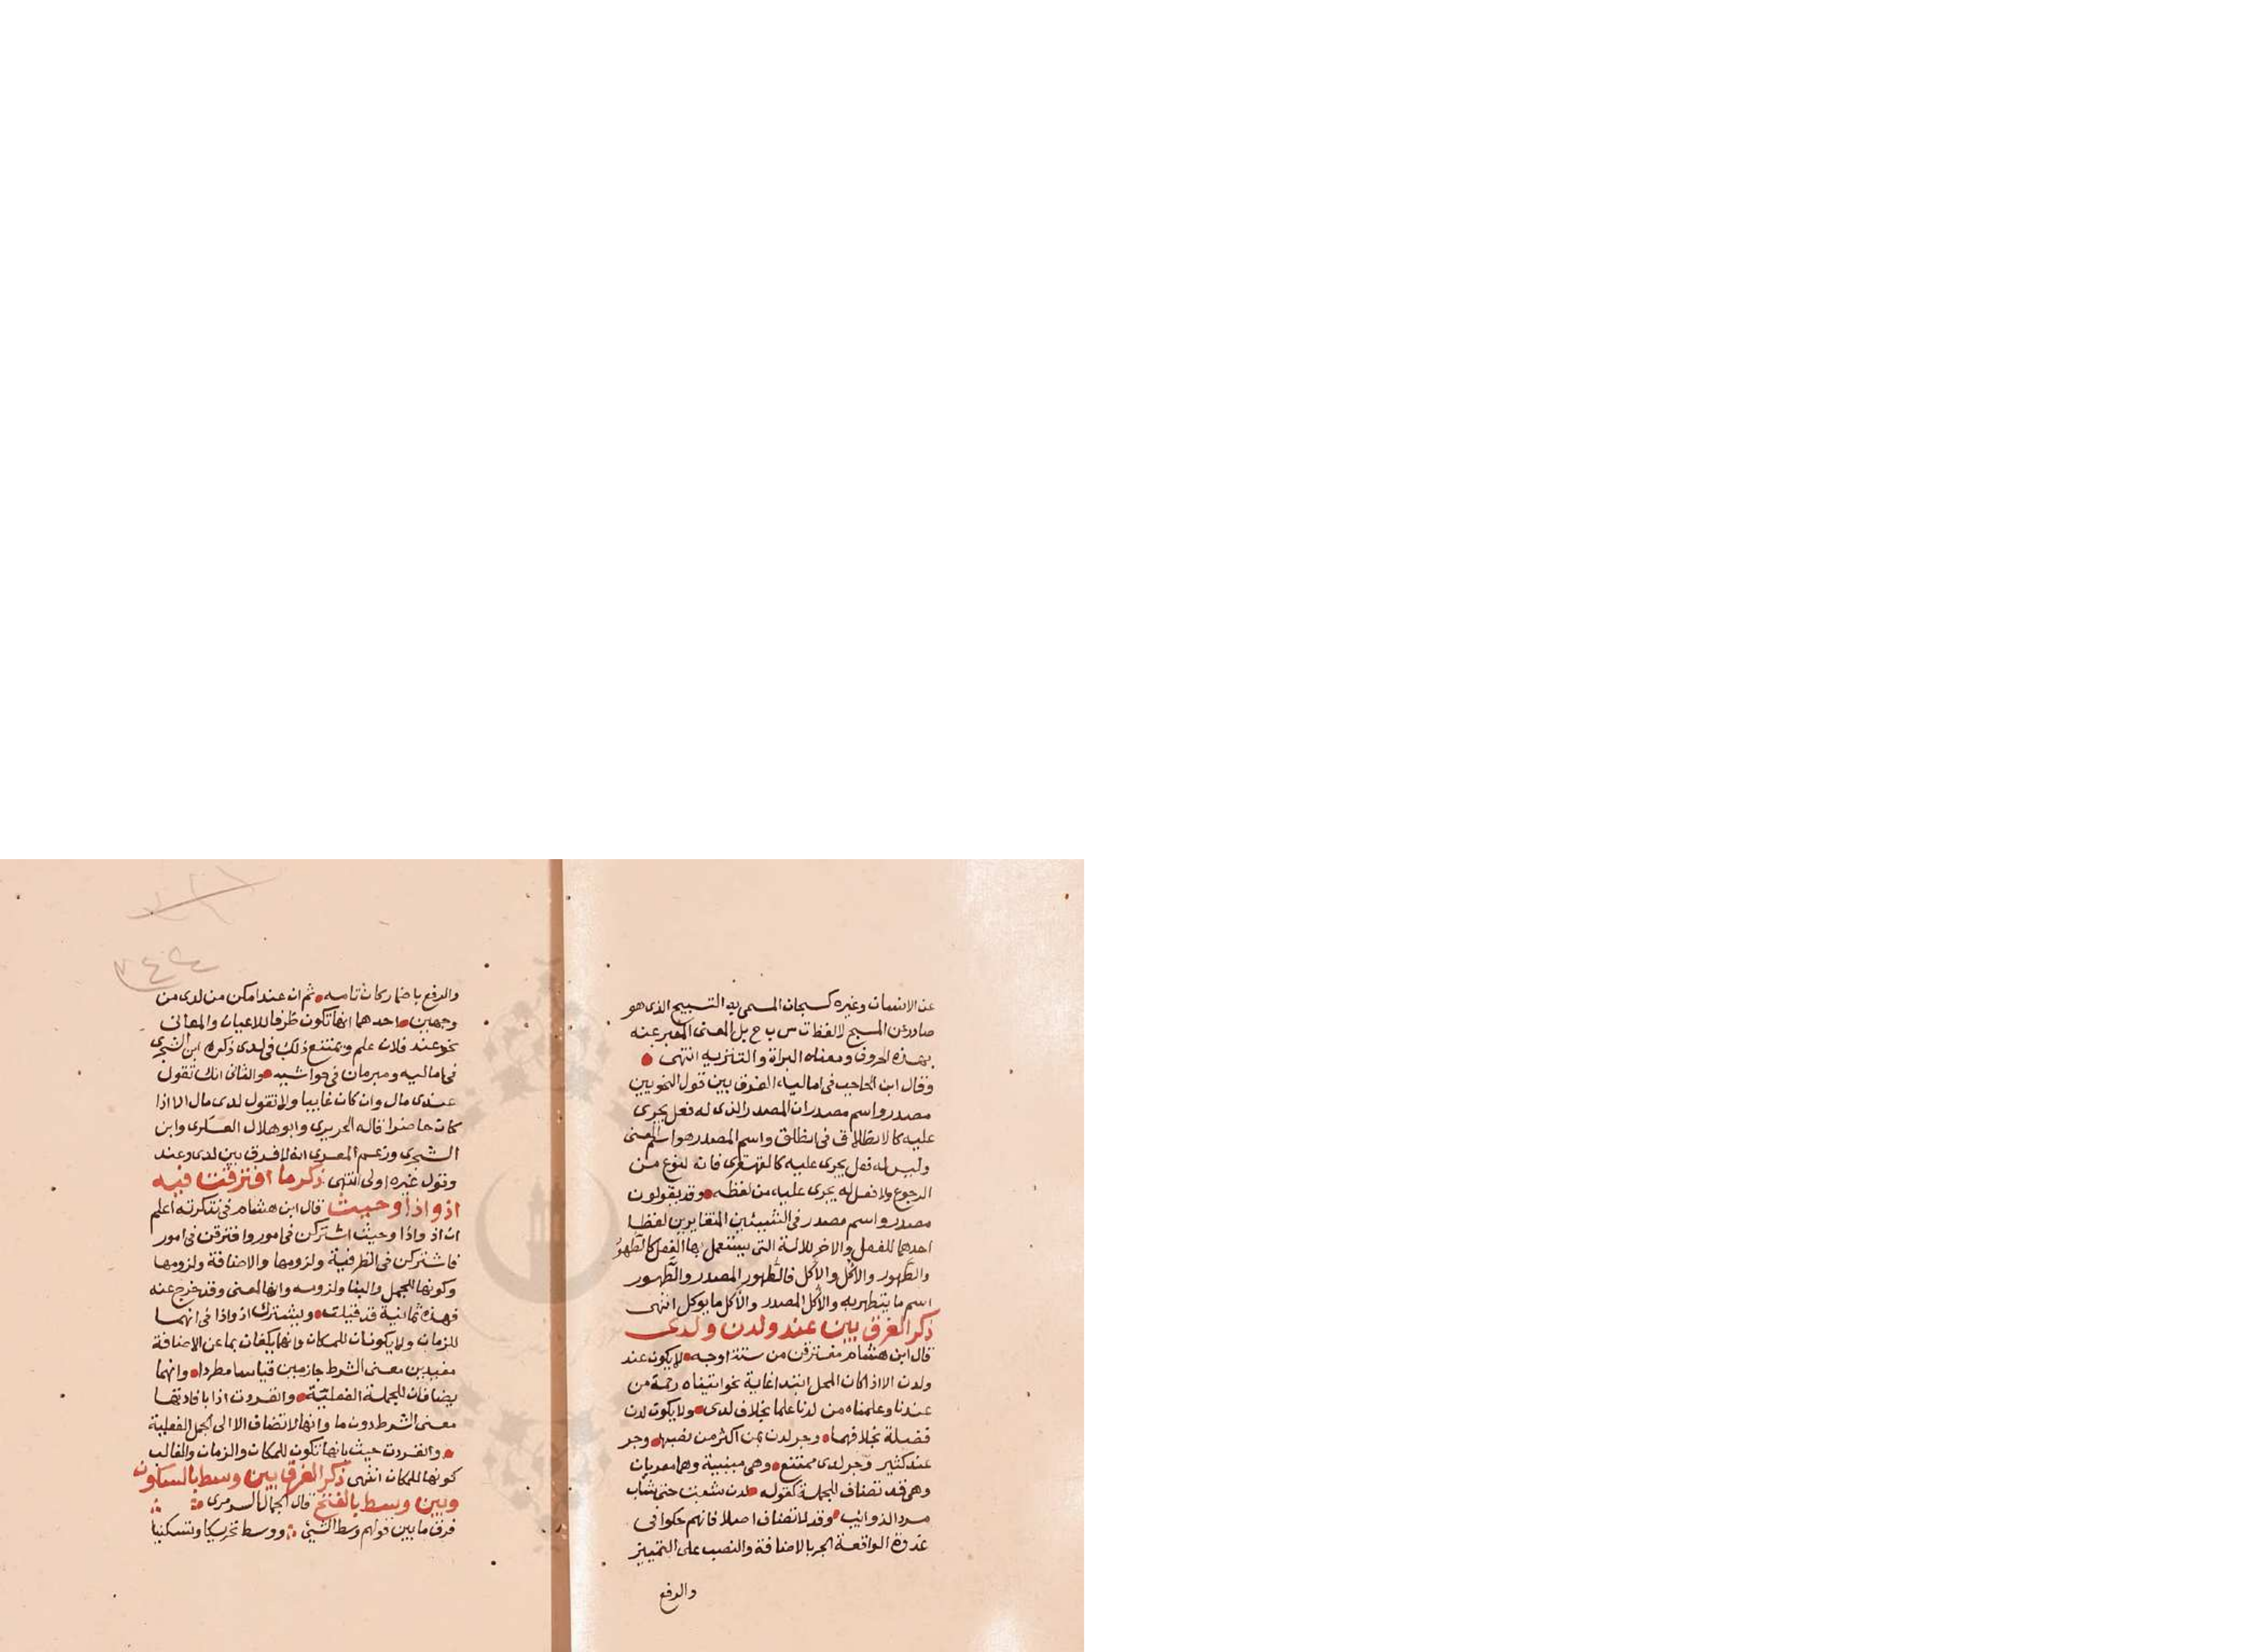 عن الانسان وغيره كسبحان المسمى به التسبيح الذى هو
صادر عن المسبح لالفظ ت س ب ح بل المعنى المعبر عنه
بهذه الحروف ومعناه البراة والتنزيه انتهى
وقال ابن الحاجب فى اماليه الفرق بين قول النحويين
مصدر واسم مصدر ان المصدر الذى له فعل يجرى
عليه كالانطلاق فى انطلق واسم المصدر هو اسم المعنى
وليس له فعل يجرى عليه كالقهقرى فانه لنوع من
الرجوع ولا فعل له يجرى عليه من لفظه وقد يقولون
مصدر واسم مصدر فى الشيئين المتغايرين لفظا
احدهما للفعل والاخر للالة التى يستعمل بها الفعل كالطهور
والطهور والاكل والاكل فالطهور المصدر والطهور
اسم ما يتطهر به والاكل المصدر والاكل ما يوكل انتهى
ذكر الفرق بين عند ولدن ولدى
قال ابن هشام مفترقن من ستة اوجه لا يكون عند
ولدن الا اذا كان المحل ابتدا غاية نحو اتيناه رحمة من
عندنا وعلمناه من لدنا علما بخلاف لدى ولا يكون لدن
فضلة بخلافهما وجر لدن بمن اكثر من نصبها وجر
عند كثير وجر لدى ممتنع وهى مبنية وهما معربان
وهى قد تضاف للجملة كقوله لدن شب حتى شاب
سود الذوايب وقد لا تضاف اصلا فانهم حكوا فى
غدوة الواقعة الجر بالاضافة والنصب على التمييز
والرفع
والرفع باضمار كان تامه ثم ان عند امكن من لدى من
وجهين احدهما انها تكون ظرفا للاعيان والمعانى
نحو عند فلان علم ويمتنع ذلك فى لدى ذكره ابن الشجرى
فى اماليه ومبرمان فى حواشيه والثانى انك تقول
عندى مال وان كان غايبا ولا تقول لدى مال الا اذا
كان حاضرا قاله الحريرى وابو هلال العسكرى وابن
الشجرى وزعم المعرى انه لا فرق بين لدى وعند
وقول غيره اولى انتهى ذكر ما افترقت فيه
اذ واذا وحيث قال ابن هشام فى تذكرته اعلم
ان اذ واذا وحيث اشتركن فى امور وافترقن فى امور
فاشتركن فى الظرفية ولزومها والاضافة ولزومها
وكونها للجمل والبنا ولزومه وانها لمعنى وقد خرج عنه
فهذه ثمانية قد قيلت ويشترك اذ واذا فى انهما
للزمان ولا يكونان للمكان وانهما يكفان بما عن الاضافة
مفيدين معنى الشرط جازمين قياسا مطردا وانهما
يضافان للجملة الفعلية وانفردت اذا بافادتها
معنى الشرط دون ما وانها لا تضاف الا الى الجمل الفعلية
وانفردت حيث بانها تكون للمكان والزمان والغالب
كونها للمكان انتهى ذكر الفرق بين وسط بالسكون
وبين وسط بالفتح قال الجمال السرمرى
فرق ما بين قولهم وسط الشئ ووسط تحريكا وتسكينا